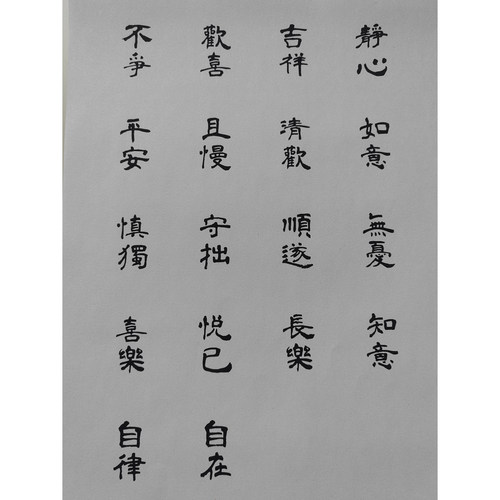 靜心
如意
無憂
知意
吉祥
清歡
順遂
長樂
歡喜
且慢
守拙
悅己
自在
不爭
平安
慎獨
喜樂
自律